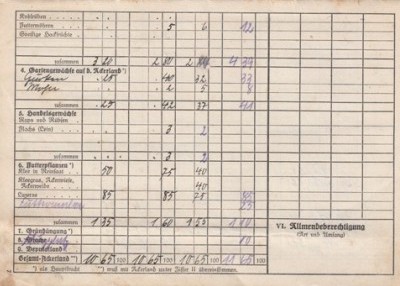 Kohlrüben
Futtermöhren 5 6 12
Sonstige Hackfrüchte
zusammen 3 20 2 80 2 4 39
4. Gartengewächse auf d. Ackerland *)
Gurken 25 40 32 33
2 5 8
zusammen 25 42 37 41
5. Handelsgewächse
Raps und Rübsen
Flachs (Lein) 3 2
zusammen 3 2
6. Futterpflanzen *)
Klee in Reinsaat 50 75 40
Kleegras, Ackerwiese,
Ackerweide 40
Luzerne 85 85 75 85
zusammen 1 35 1 60 1 55
7. Gründüngung *)
8. 10
9. Brachland
Gesamt-Ackerland **) 10 65 10 65 10 65 11 65
*) als Hauptfrucht **) muß mit Ackerland unter Ziffer II übereinstimmen.
VI. Allmendeberechtigung
(Art und Umfang)